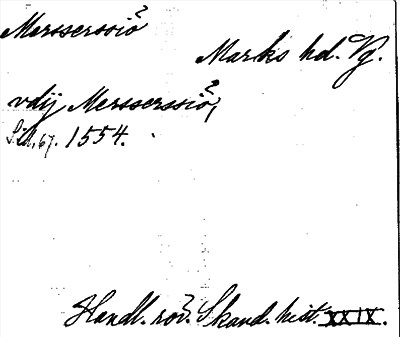 Mersserssiö?
Marks hd. Vg.
vdij Mersserssiö?,
Sid. 67. 1554.
Handl. rör. Skand. hist. XXIX.